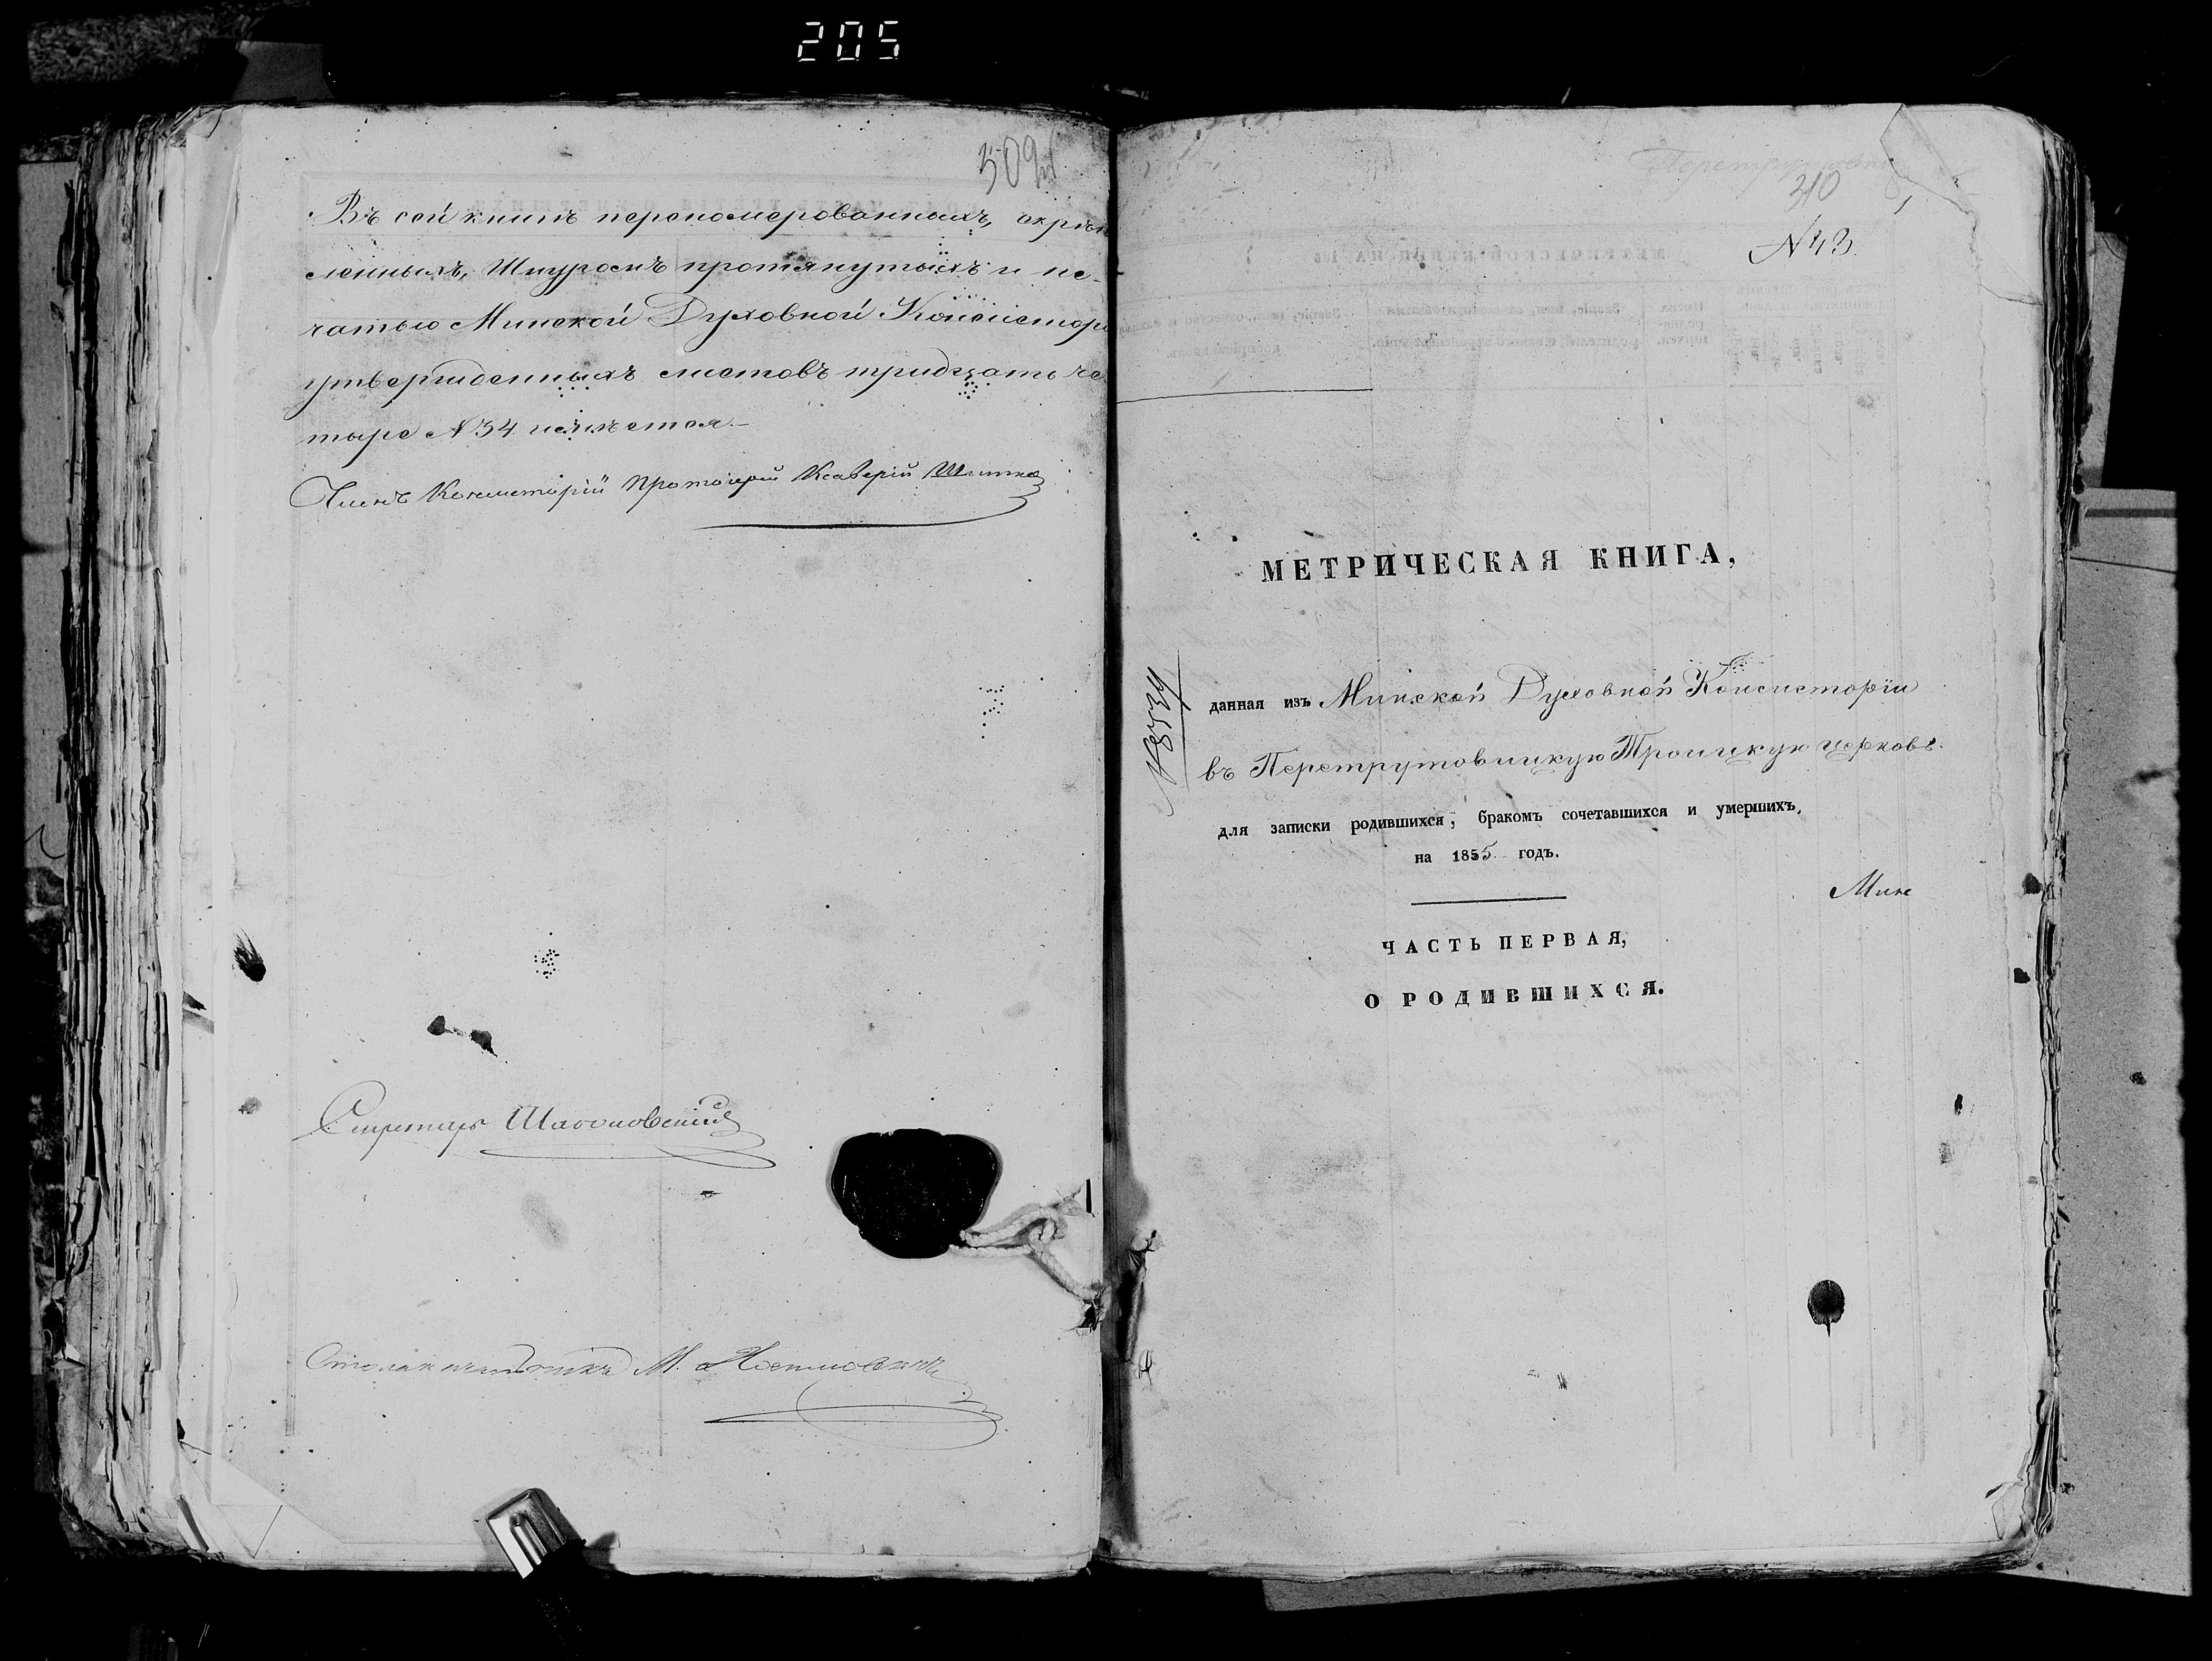 205
Въ сей книгѣ перономерованныхъ, скрѣп
ленныхъ, Шнуромъ протянутыхъ и пе-
чатью Минской Духовной Консистор
утвержденныхъ листовъ тридцать че
тыре №34 имѣется.-
Членъ Консисторіи Протоіерей Ксаверій
Секретарь
Столоначальникъ М.
310
№43.
МЕТРИЧЕСКАЯ КНИГА,
данная изъ Минской Духовной Консисторіи
въ Перетрутовицкую Троицкую церковь.
для записки родившихся, бракомъ сочетавшихся и умершихъ,
на 1855 годъ.
Мин
ЧАСТЬ ПЕРВАЯ,
О РОДИВШИХСЯ.